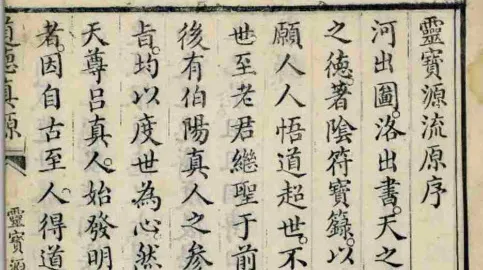 靈寶源流原序
河出圖。洛出書。天之
之德。著陰符寶籙。以
願人人悟道超世。不
世至老君繼聖于前
後有伯陽真人之參
旨。均以度世為心。然
天尊呂真人。始發明
者。因自古至人。得道
道德真源
靈寶源